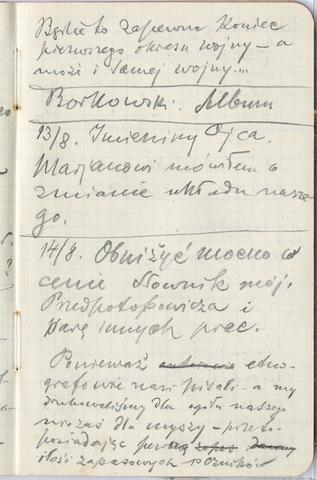 Będzie to zapewne koniec
pierwszego okresu wojny – a
może i samej wojny...
Borkowski. Album
13/8. Imieniny Ojca.
Marjanowi mówiłem o
zmianie układu nasze-
go.
14/8. Obniżyć mocno w
cenie Słownik mój,
Przedpotopowicza i
parę innych prac.
Ponieważ autorowie etno-
grafowie nasi pisali – a my
drukowaliśmy dla ogółu naszego
niczaś dla myszy – przeto
posiadając pewną zapas
ilość zapasowych roczników